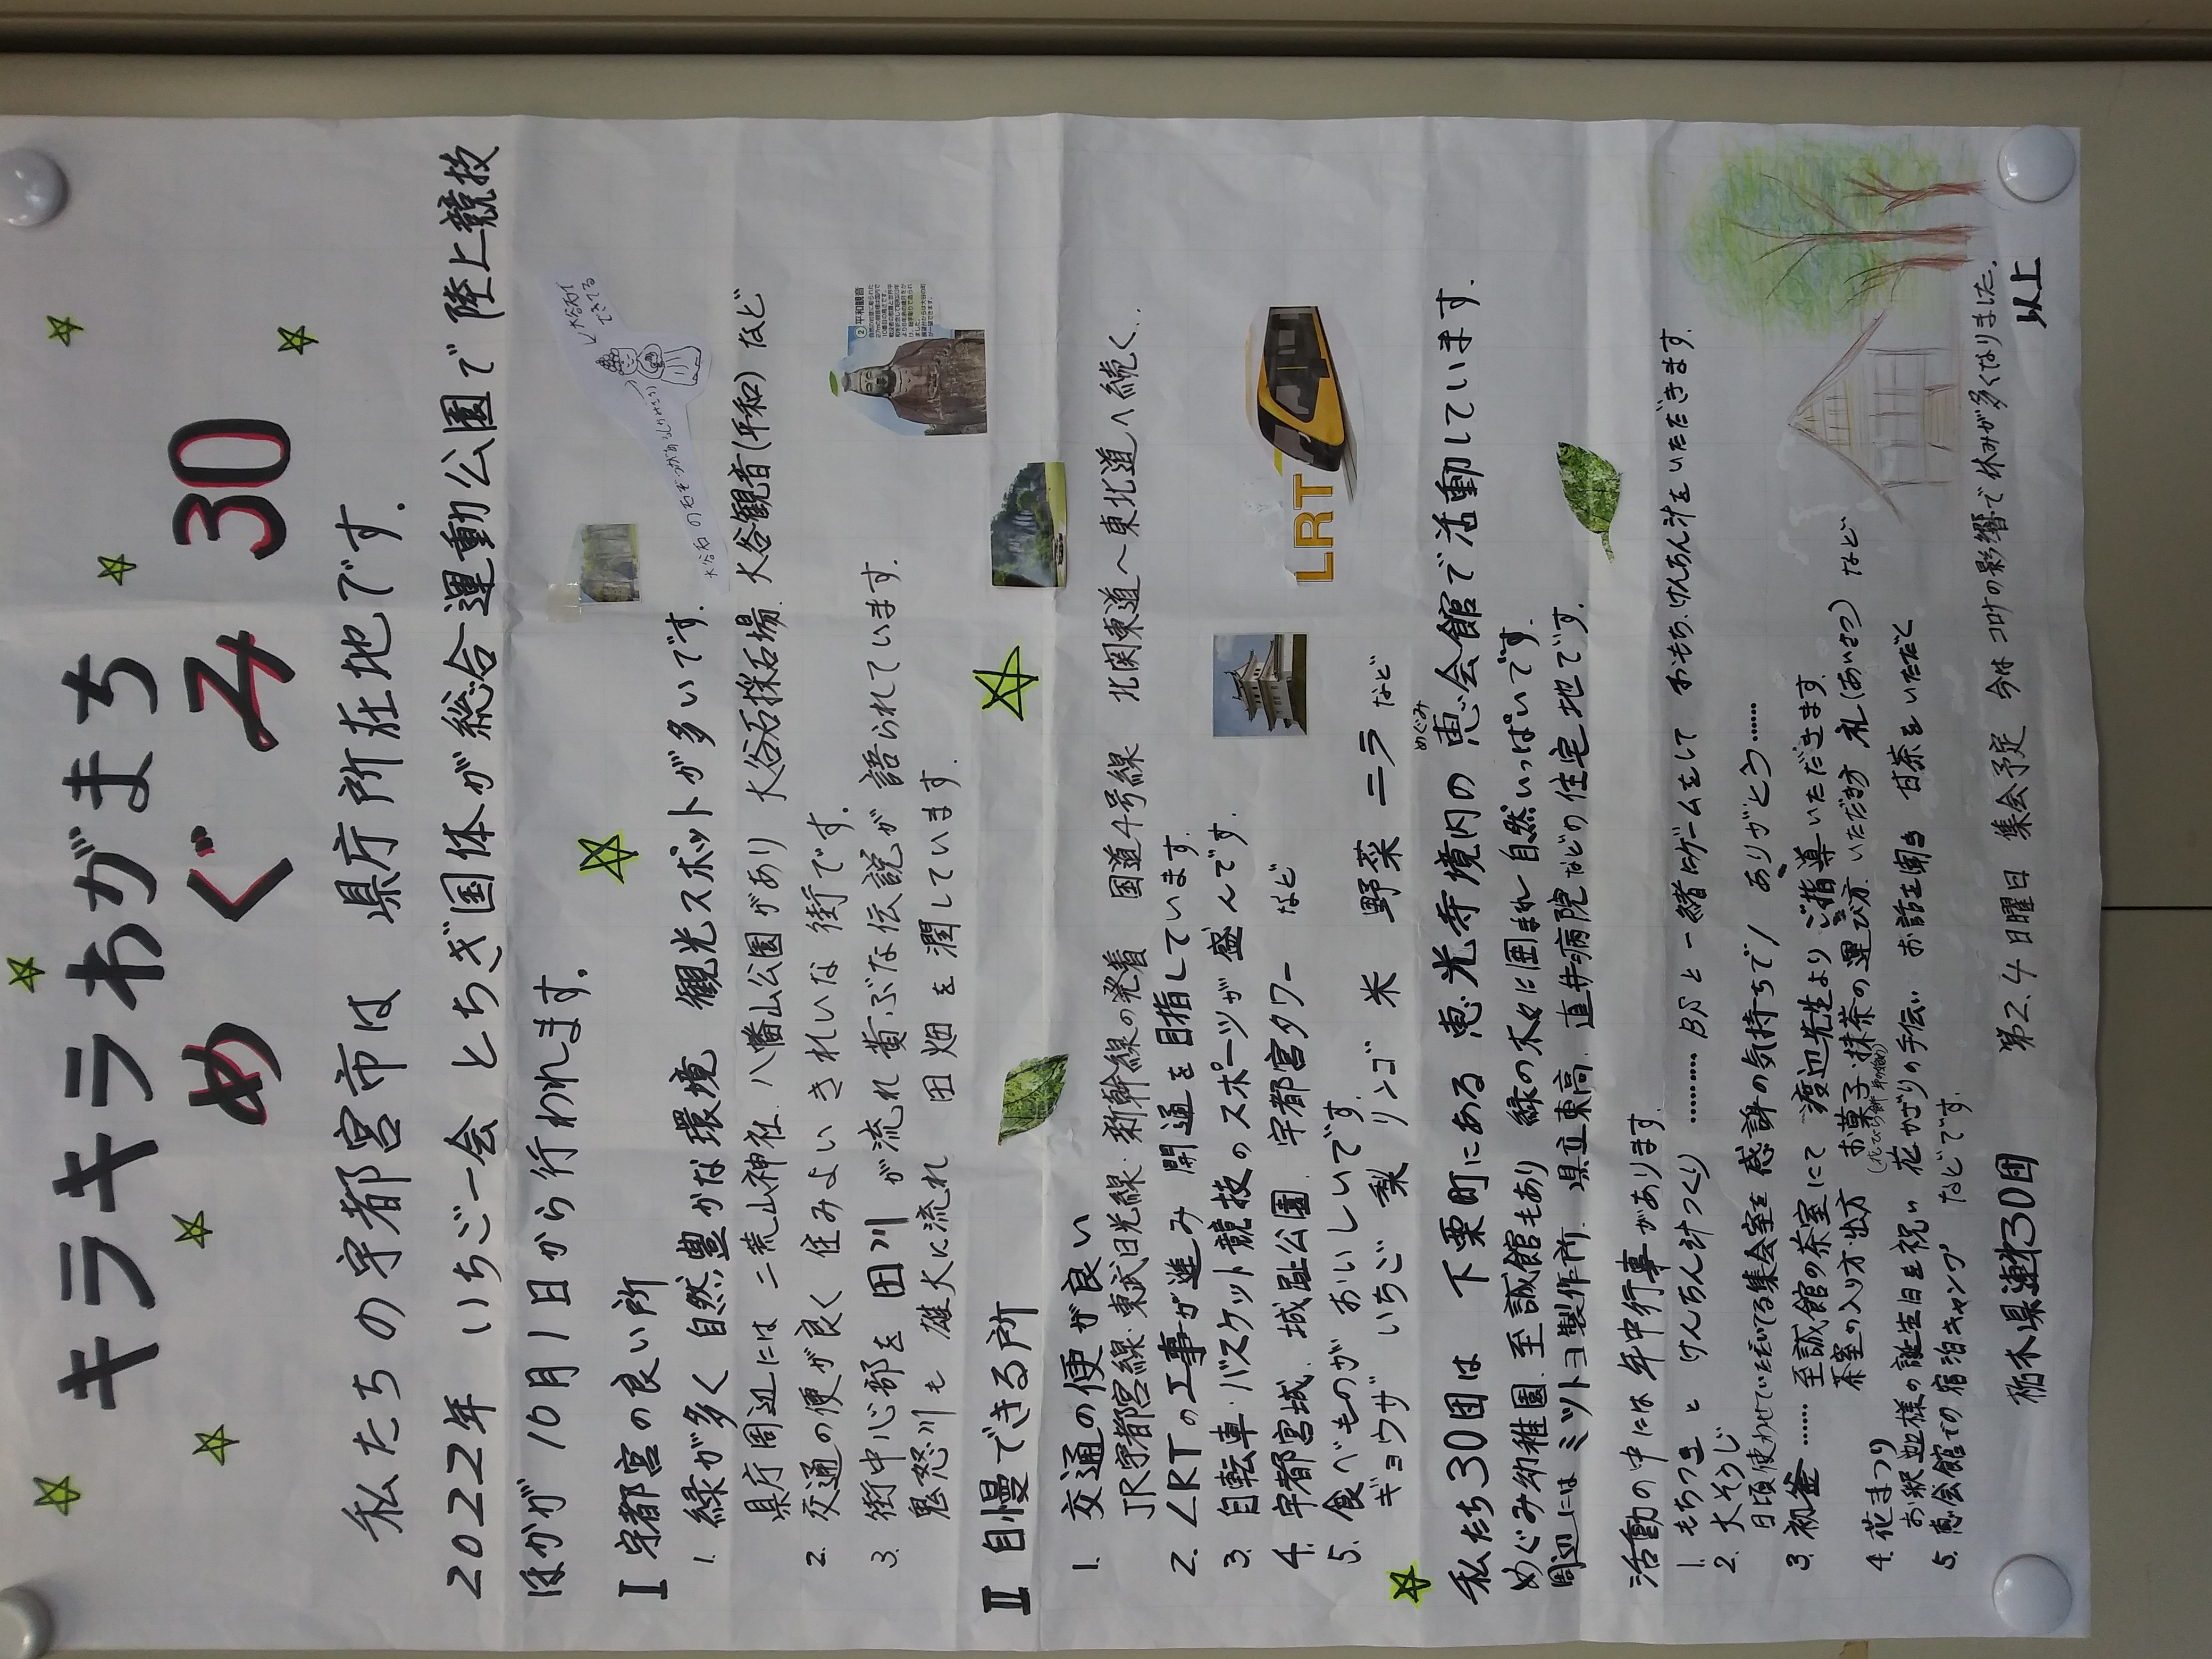 キラキラわがまち
めぐみ30
私たちの宇都宮市は 県庁所在地です.
2022年 いちご一会 とちぎ国体が総合運動公園で陸上競技
ほかが 10月1日から行われます.
I 宇都宮の良い所
1. 緑が多く 自然豊かな環境 観光スポットが多いです.
県庁周辺には 二荒山神社. 八幡山公園があり 大谷石採石場. 大谷観音(平和) など
2. 交通の便が良く 住みよい きれいな 街です.
3. 街中心部を 田川 が流れ 黄ぶな伝説が 語られています.
鬼怒川も 雄大に流れ 田畑を潤しています.
大谷石でできてる
②平和観音
II 自慢できる所
1. 交通の便が良い
JR宇都宮線・東武日光線・新幹線の発着 国道4号線 北関東道〜東北道へ続く..
2. LRTの工事が進み 開通を目指しています.
3. 自転車・バスケット競技のスポーツが盛んです.
4. 宇都宮城. 城址公園. 宇都宮タワー など
5. 食べものが おいしいです.
ギョウザ いちご 梨 リンゴ 米 野菜 ニラ など
LRT
私たち30団は 下栗町にある 恵光寺境内の 恵会館で活動しています.
めぐみ
めぐみ幼稚園. 至誠館もあり 緑の木々に囲まれ 自然いっぱいです.
周辺には ミツトヨ製作所. 県立東高. 直井病院などの住宅地です.
活動の中には 年中行事があります.
1. もちつき と けんちん汁つくり ……… BSと一緒にゲームをして おもち. けんちん汁をいただきます.
2. 大そうじ
日頃使わせていただいてる集会室を 感謝の気持ちで! ありがとう……
3. 初釜…… 至誠館の茶室にて 渡辺先生より ご指導いただきます.
茶室の入り方・出方 お菓子・抹茶の運び方. いただき方 礼(あいさつ) など
4. 花まつり
お釈迦様の誕生日を祝い 花かざりの手伝い お話を聞き 甘茶をいただく
5. 恵会館での宿泊キャンプ などです.
栃木県連第30団 第2.4日曜日 集会予定 今はコロナの影響で休みが多くなりました.
以上